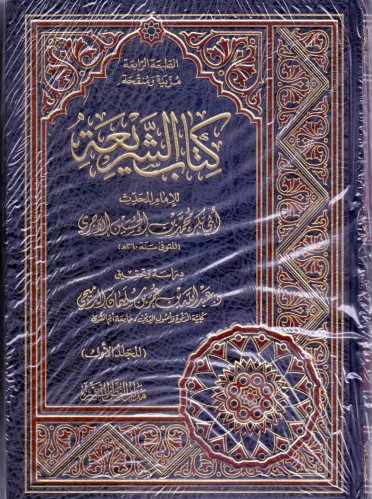 الطبعة الرابعة
مزيدة ومنقحة
كتاب الشريعة
للإمام المحدث
أبي بكر محمد بن الحسين الآجري
(المتوفى سنة ٣٦٠هـ)
دراسة وتحقيق
د. عبد الله بن عمر بن سليمان الدميجي
كلية الدعوة وأصول الدين، جامعة أم القرى
(المجلد الأول)